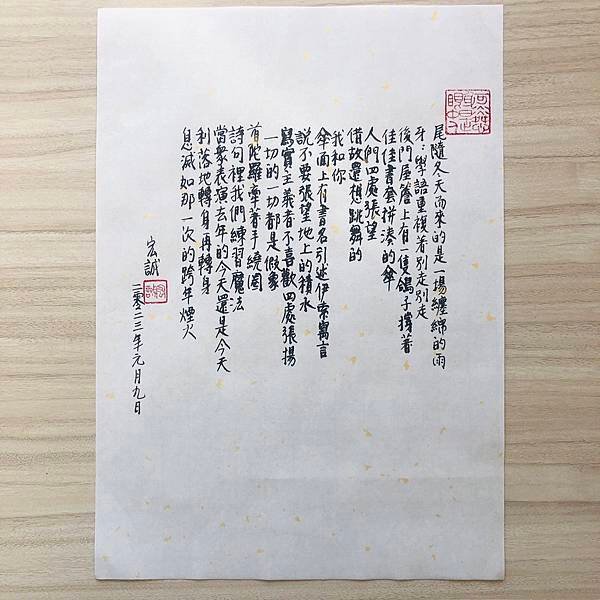 尾隨冬天而來的是一場纏綿的雨
牙牙學語重複著別走別走
後門屋簷上有一隻鴿子撐著
佳佳書套拼湊的傘
人們四處張望
借故還想跳舞的
我和你
傘面上有書名引述伊索寓言
說不要張望地上的積水
寫實主義者不喜歡四處張揚
一切的一切都是假象
首陀羅牽著手繞圈
詩句裡我們練習魔法
當眾表演去年的今天還是今天
利落地轉身再轉身
息滅如那一次的跨年煙火
宏誠
二〇二三年元月九日